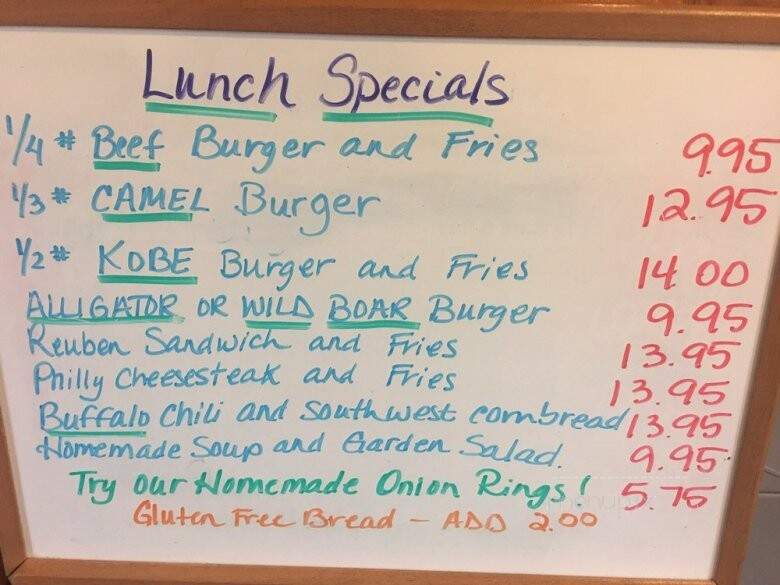 Lunch Specials
1/4 # Beef Burger and Fries 9.95
1/3 # CAMEL Burger 12.95
1/2 # KOBE Burger and Fries 14 00
ALLIGATOR OR WILD BOAR Burger 9.95
Reuben Sandwich and Fries 13.95
Philly Cheesesteak and Fries 13.95
Buffalo Chili and Southwest cornbread 13.95
Homemade Soup and Garden Salad. 9.95
Try our Homemade Onion Rings! 5.75
Gluten Free Bread - ADD 2.00